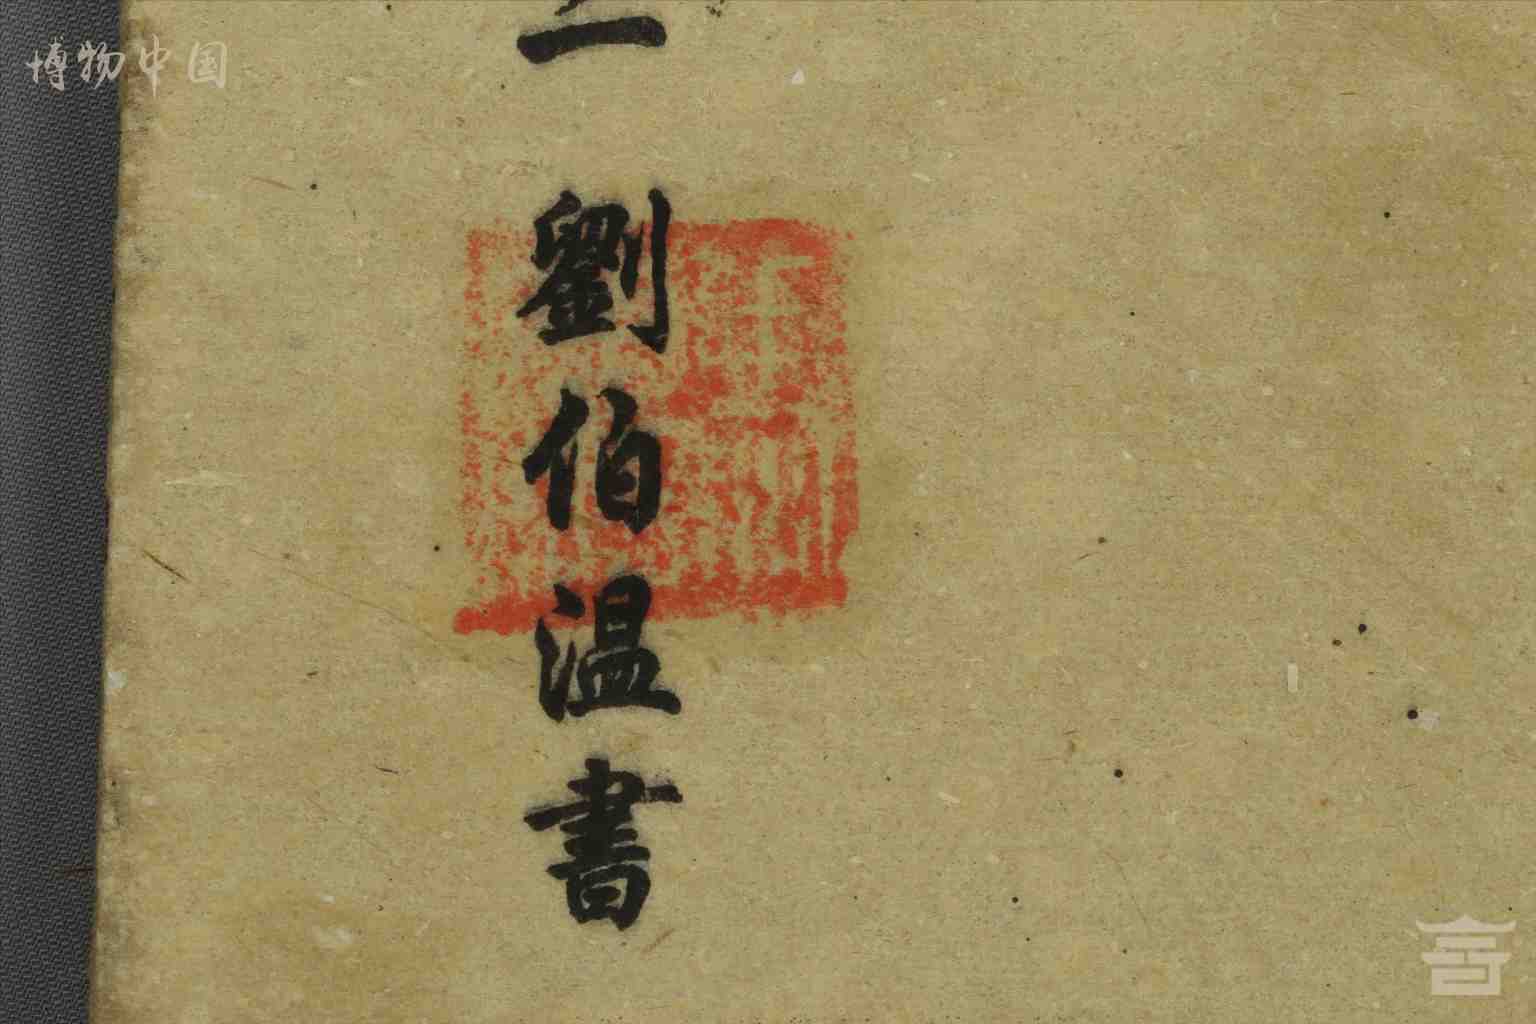 博物中国
劉伯温書